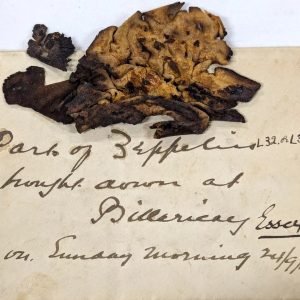 Part of Zeppelin L32 or L3
brought down at
Billericay Essex
on Sunday morning 24/9/